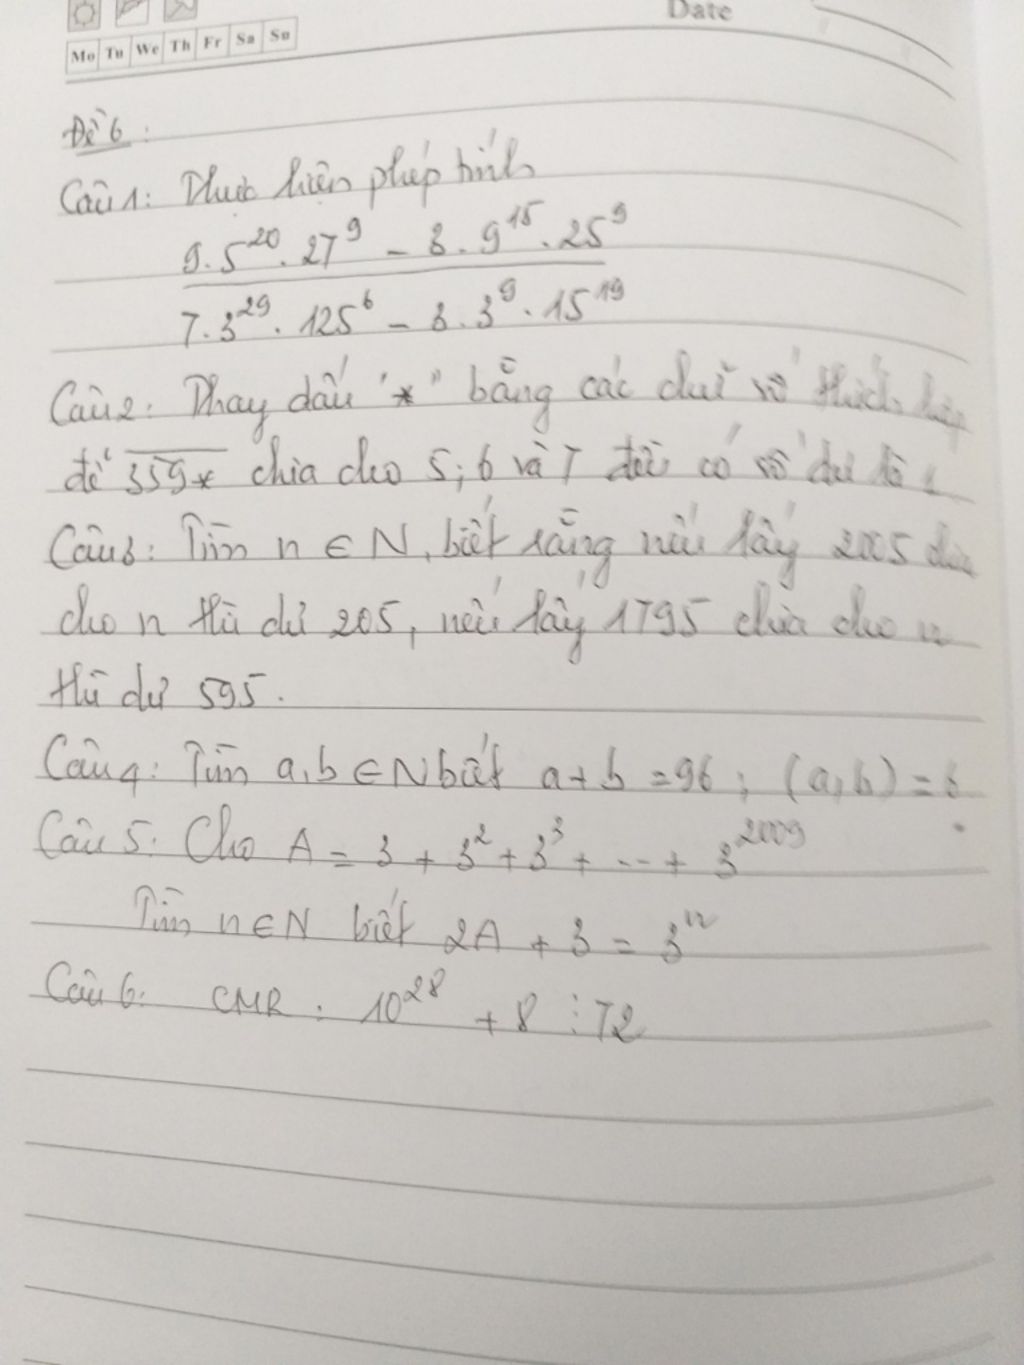 Date
Mo Tu We Th Fr Sa Su
Đề 6:
Câu 1: Thực hiện phép tính
9.5^20.27^9 - 3.9^15.25^9
7.3^29.125^6 - 3.3^9.15^19
Câu 2: Thay dấu "*" bằng các chữ số thích hợp
để 359* chia cho 5; 6 và 7 đều có số dư là 1
Câu 3: Tìm n ∈ N, biết rằng nếu lấy 2005 chia
cho n thì dư 205, nếu lấy 1795 chia cho n
thì dư 595.
Câu 4: Tìm a,b ∈ N biết a + b = 96; (a,b) = 6
Câu 5: Cho A = 3 + 3^2 + 3^3 + ... + 3^2009
Tìm n ∈ N biết 2A + 3 = 3^n
Câu 6: CMR: 10^28 + 8 ⋮ 72